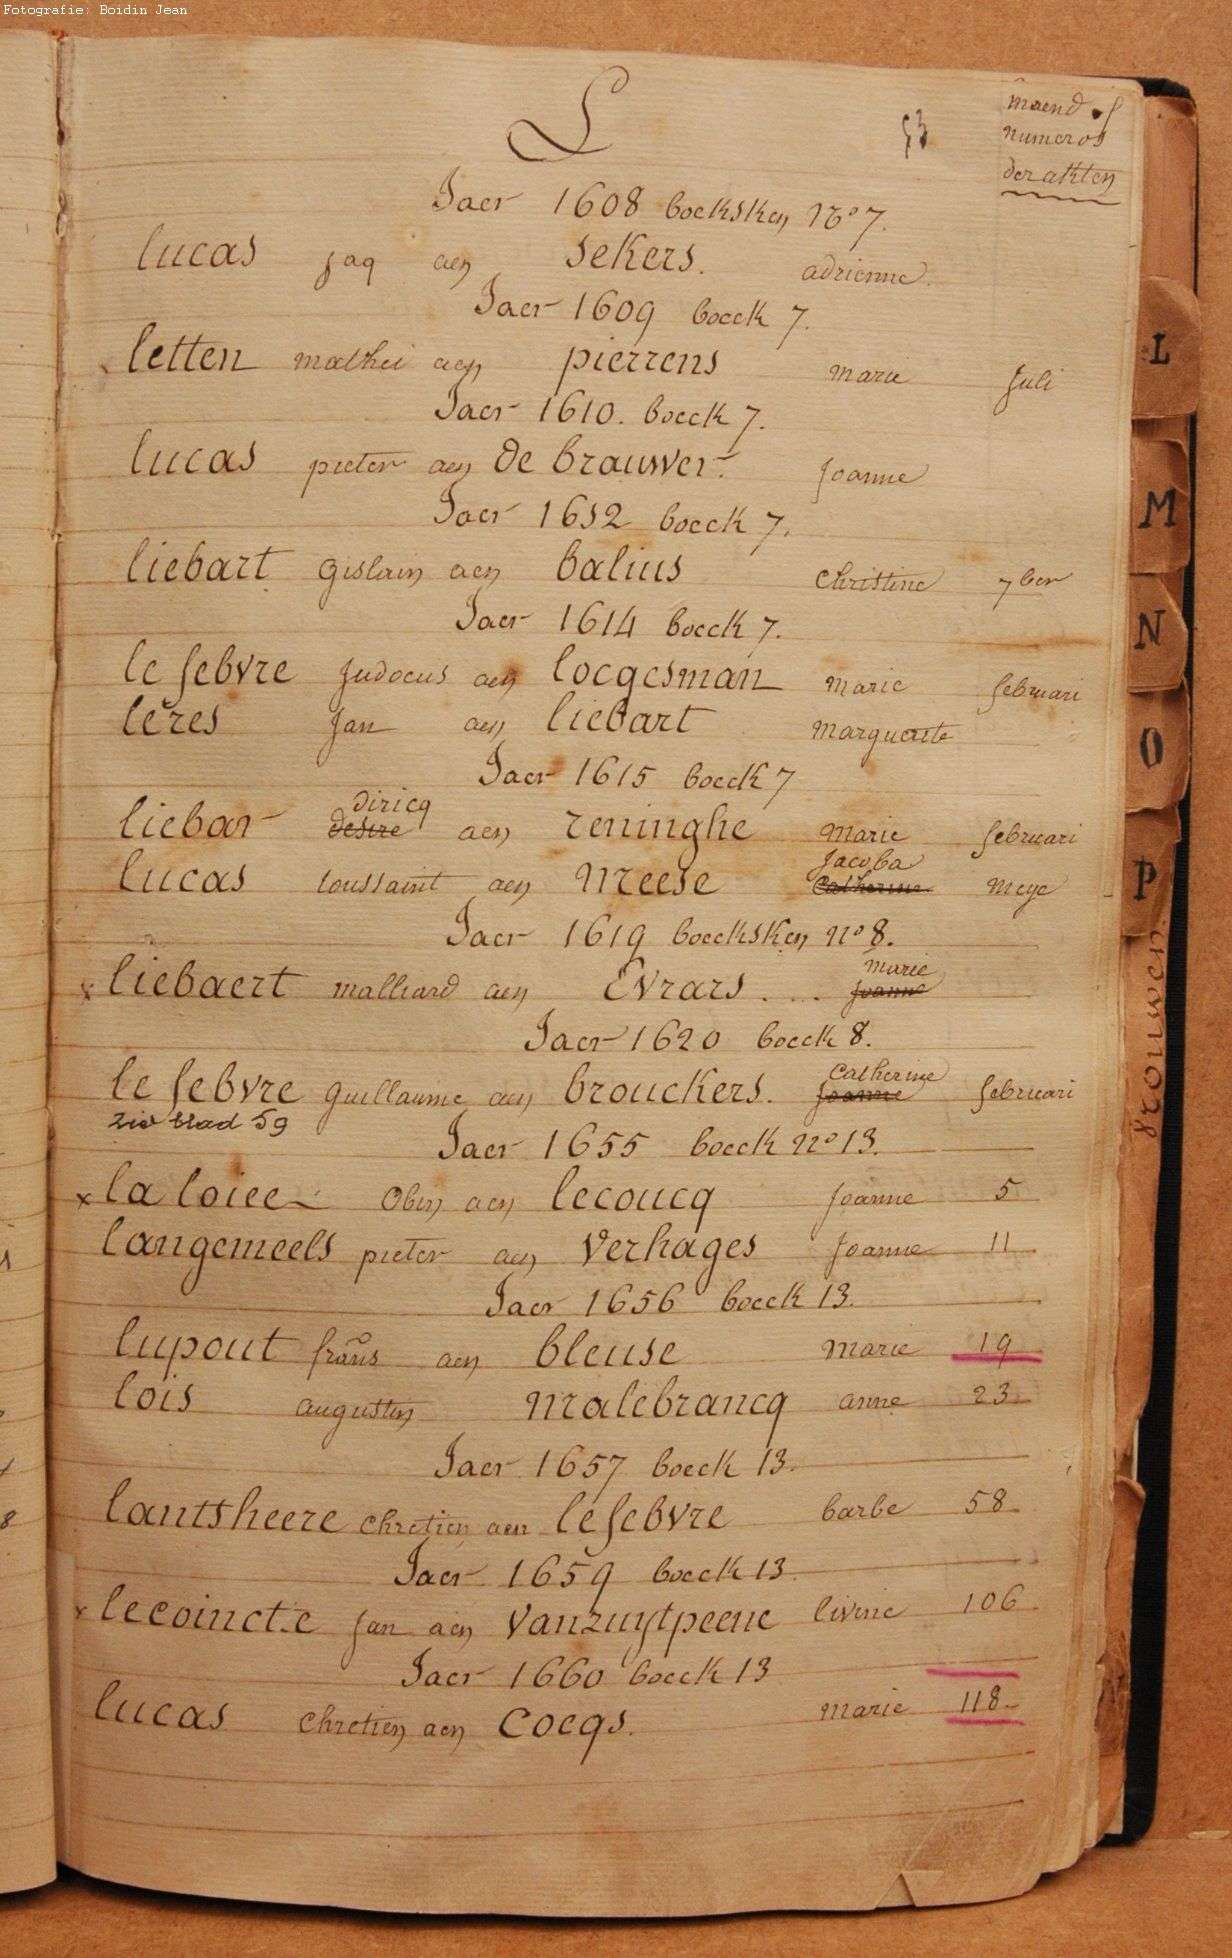 Fotografie: Boidin Jean
L
53
maend of
numeros
der akten
Jaer 1608 boeksken No 7.
lucas jaq aen sekers. adrienne
Jaer 1609 boeck 7.
letten mathei aen pierrens marie Juli
Jaer 1610. boeck 7.
lucas pieter aen de brauwer. Joanne
Jaer 1612 boeck 7.
liebart gislain aen balius Christine 7ber
Jaer 1614 boeck 7.
le febvre Judocus aen locgesman marie februari
leres Jan aen liebart marguerite
Jaer 1615 boeck 7
diricq
liebar desire aen reninghe marie februari
Jacoba
lucas toussaint aen Meese Catherine meye
Jaer 1619 boecksken no 8.
marie
x liebaert malliard aen Evrars . . . Joanne
Jaer 1620 boeck 8.
Catherine
le febvre guillaume aen brouckers. Joanne februari
zie blad 59
Jaer 1655 boeck no 13.
x la loiee Obin aen lecoucq Joanne 5
langemeels pieter aen Verhages Joanne 11
Jaer 1656 boeck 13.
lupout frans aen bleuse marie 19
lois augustin Malebrancq anne 23
Jaer 1657 boeck 13.
lantsheere chretien aen lefebvre barbe 58
Jaer 1659 boeck 13.
x lecoincte Jan aen Vanzuytpeene livine 106
Jaer 1660 boeck 13
lucas Chretien aen Cocqs. marie 118
L
M
N
O
P
vrouwen
8